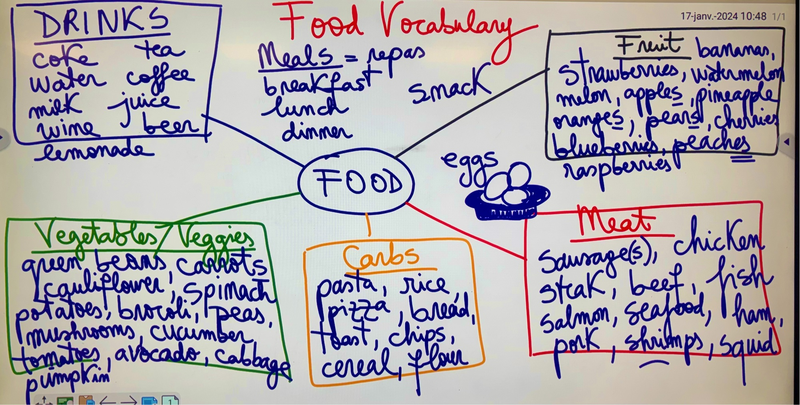 Food Vocabulary
17-janv.-2024 10:48 1/1
DRINKS
coke tea
water coffee
milk juice
wine beer
lemonade
Meals = repas
breakfast
lunch
dinner
smack
Fruit bananas,
strawberries, watermelon
melon, apples, pineapple
oranges, pears, cherries
blueberries, peaches
raspberries
eggs
FOOD
Vegetables/Veggies
green beans, carrots
cauliflower, spinach
potatoes, brocoli, peas,
mushrooms, cucumber
tomatoes, avocado, cabbage
pumpkin
Carbs
pasta, rice
pizza, bread,
toast, chips,
cereal, flour
Meat
sausage(s), chicken
steak, beef, fish
salmon, seafood, ham,
pork, shrimps, squid